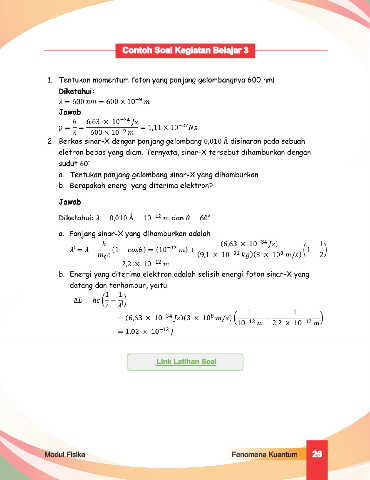 Contoh Soal Kegiatan Belajar 3
1. Tentukan momentum foton yang panjang gelombangnya 600 nm!
Diketahui:
λ = 600 nm = 600 × 10⁻⁹ m
Jawab
p = h/λ = 6,63 × 10⁻³⁴ Js / 600 × 10⁻⁹ m = 1,11 × 10⁻²⁷ Ns
2. Berkas sinar-X dengan panjang gelombang 0,010 Å disinaran pada sebuah
eletron bebas yang diam. Ternyata, sinar-X tersebut dihamburkan dengan
sudut 60°
a. Tentukan panjang gelombang sinar-X yang dihamburkan
b. Berapakah energi yang diterima elektron?
Jawab
Diketahui: λ = 0,010 Å = 10⁻¹² m dan θ = 60°
a. Panjang sinar-X yang dihamburkan adalah
λ' = λ + h/m₀c (1 − cosθ) = (10⁻¹² m) + (6,63 × 10⁻³⁴ Js) / (9,1 × 10⁻³¹ kg)(3 × 10⁸ m/s) (1 − 1/2)
= 2,2 × 10⁻¹² m
b. Energi yang diterima elektron adalah selisih energi foton sinar-X yang
datang dan terhambur, yaitu
ΔE = hc (1/λ − 1/λ')
= (6,63 × 10⁻³⁴ Js)(3 × 10⁸ m/s) (1/10⁻¹² m − 1/2,2 × 10⁻¹² m)
= 1,02 × 10⁻¹³ J
Link Latihan Soal
Modul Fisika Fenomena Kuantum 26